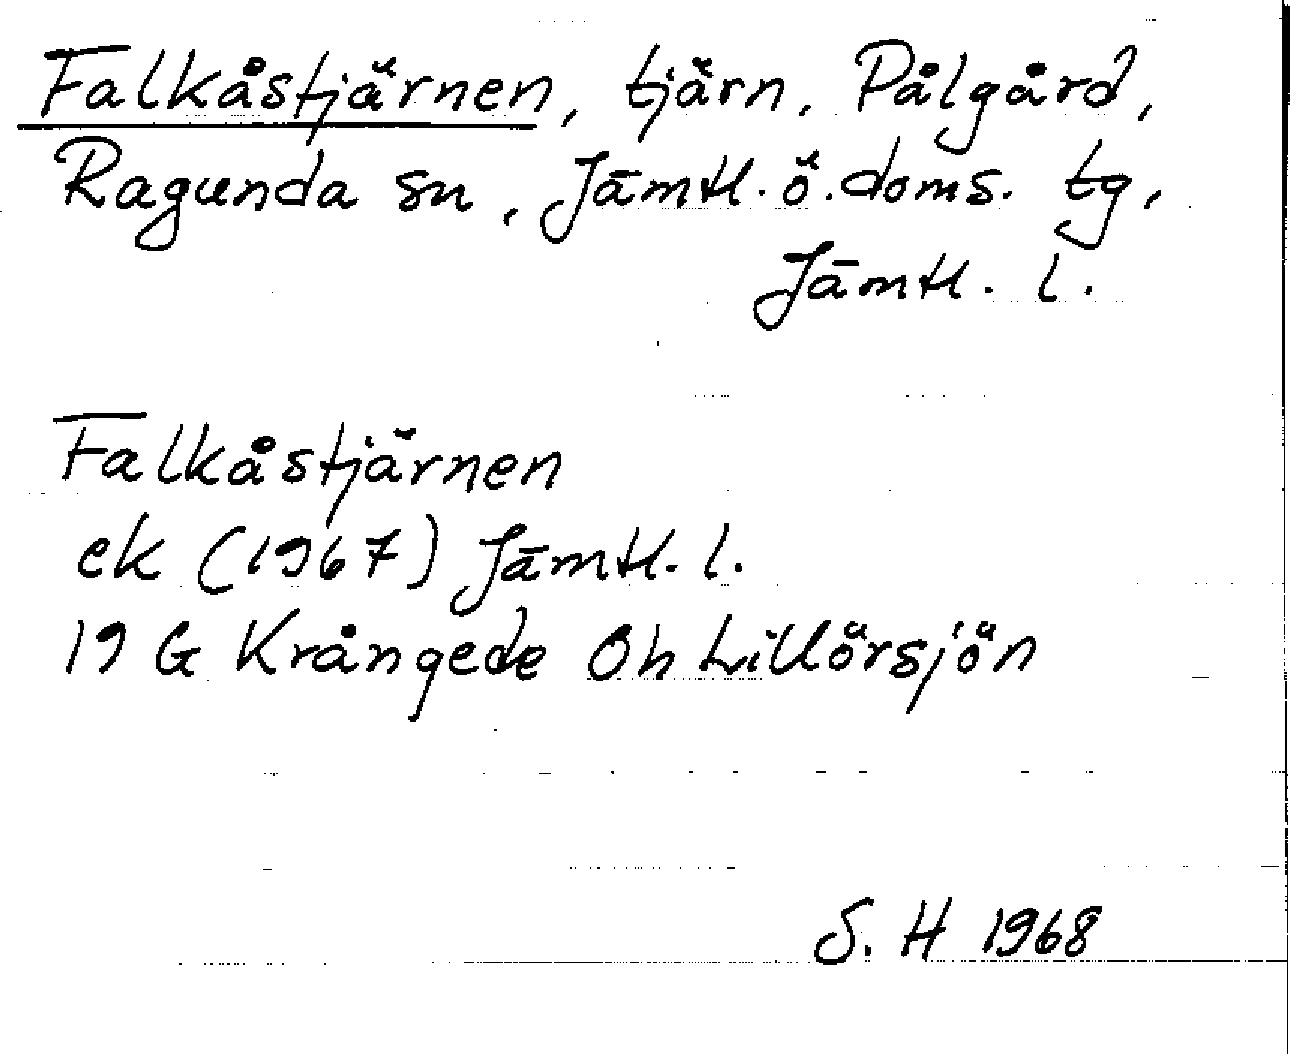 Falkåstjärnen, tjärn, Pålgård,
Ragunda sn, Jämtl. ö. doms. tg,
Jämtl. l.
Falkåstjärnen
ek (1967) Jämtl. l.
19 G Krångede 0h Lillörsjön
S. H 1968